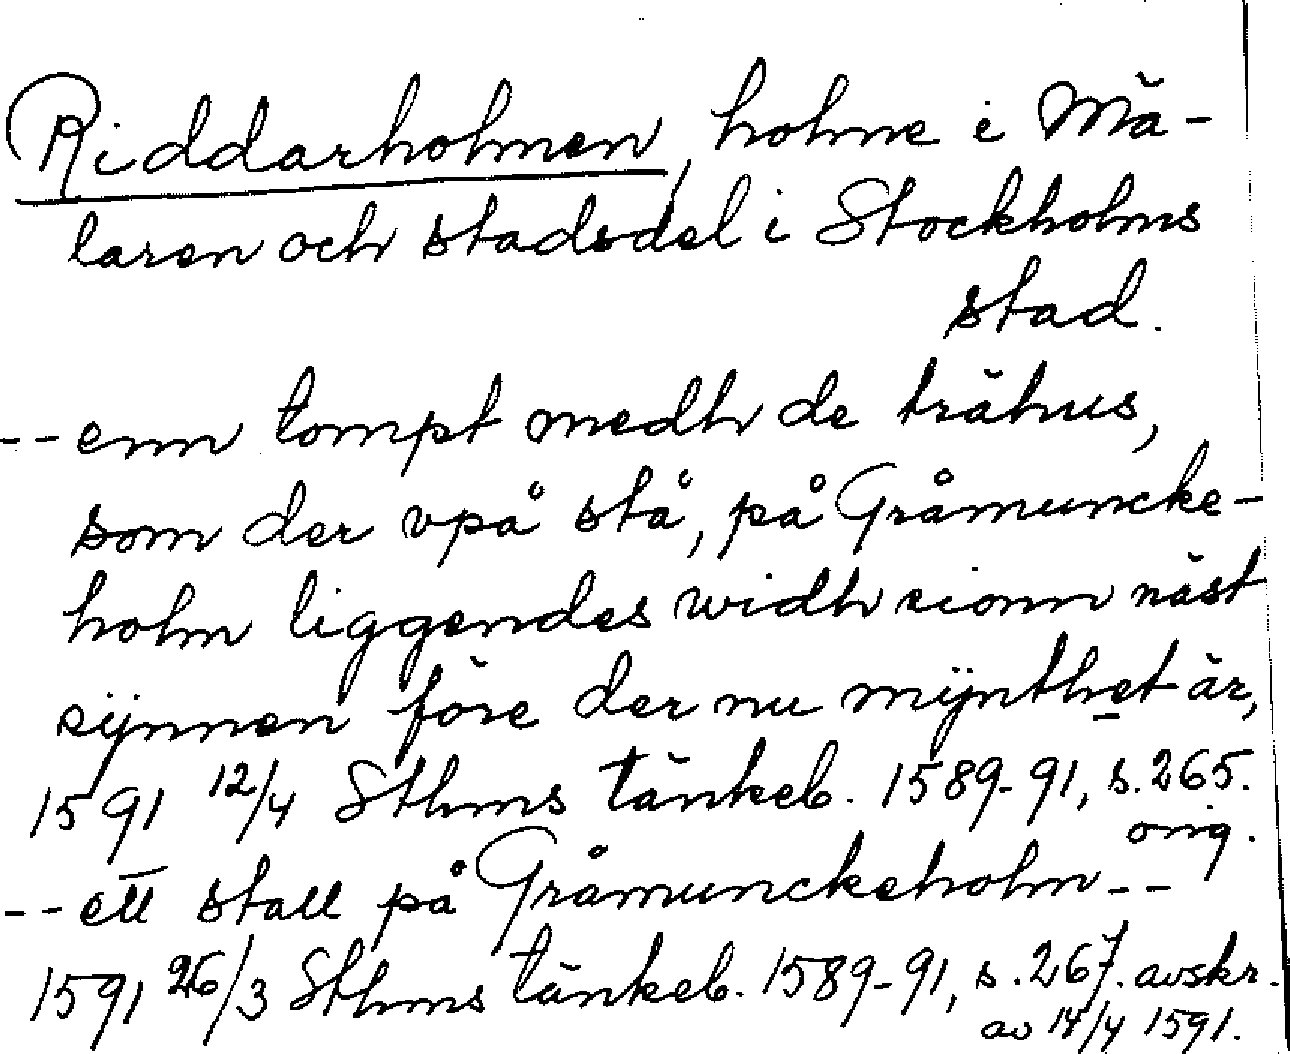 Riddarholmen, holme i Mä-
laren och stadsdel i Stockholms
stad.
-- enn tompt medh de trähus,
som der vpå stå, på Gråmuncke-
holm liggendes widh sionn näst
sÿnnen före der nu mÿnthet är,
1591 12/4 Sthms tänkeb. 1589-91, s. 265.
orig.
-- ett stall på Gråmunckeholm --
1591 26/3 Sthms tänkeb. 1589-91, s. 267. avskr.
av 14/4 1591.